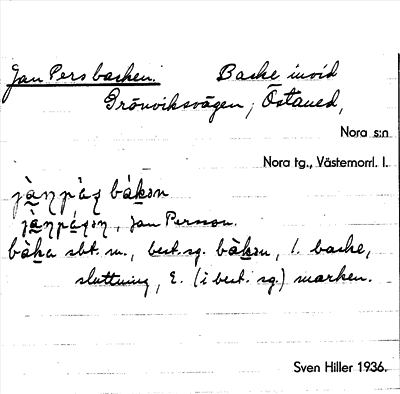 Jan Persbacken. Backe invid
Grönviksvägen, Östaned,
Nora s:n
Nora tg., Västernorrl. l.
bàka sbt. m., best. sg. bàkən, 1. backe,
sluttning, 2. (i best. sg.) marken.
Sven Hiller 1936.